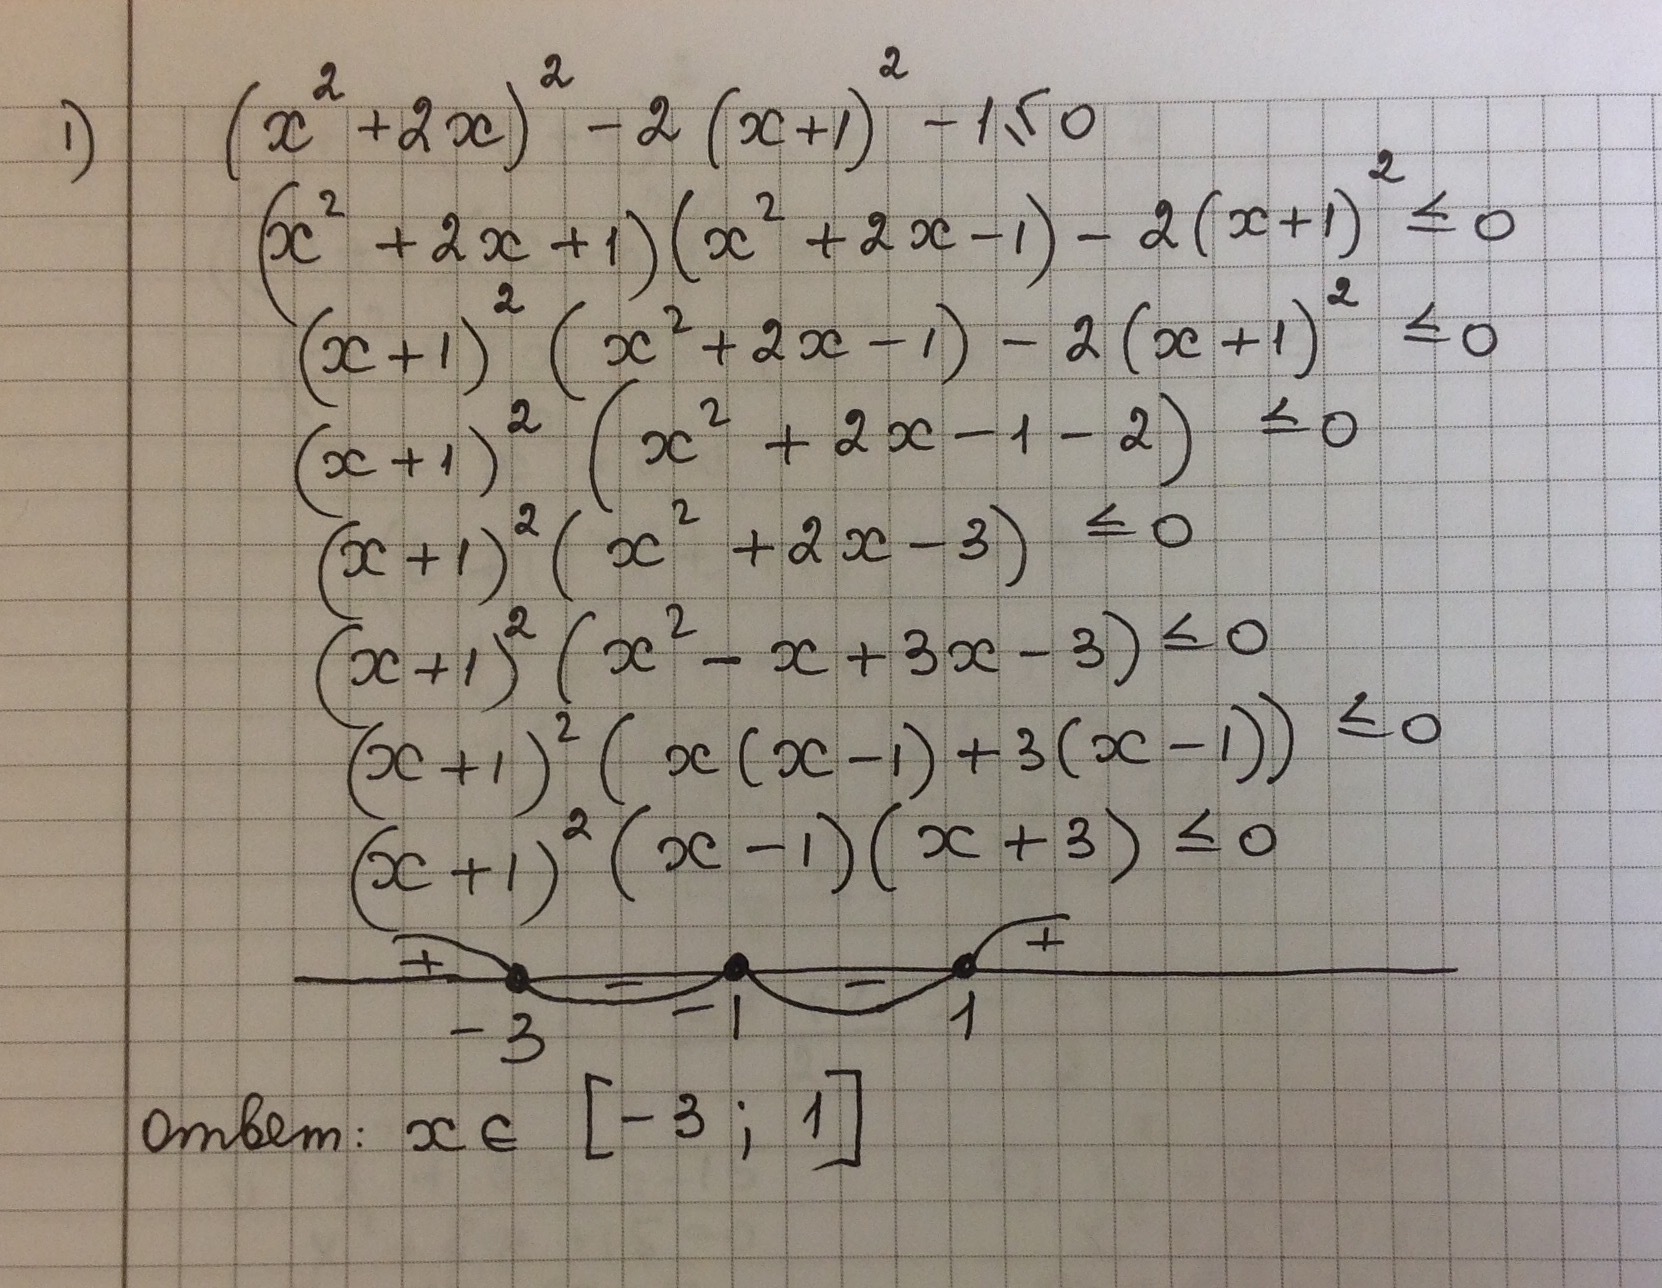 1) (x² + 2x)² - 2(x+1)² - 1 ≤ 0
(x² + 2x + 1)(x² + 2x - 1) - 2(x+1)² ≤ 0
(x+1)² (x² + 2x - 1) - 2(x+1)² ≤ 0
(x+1)² (x² + 2x - 1 - 2) ≤ 0
(x+1)² (x² + 2x - 3) ≤ 0
(x+1)² (x² - x + 3x - 3) ≤ 0
(x+1)² (x(x-1) + 3(x-1)) ≤ 0
(x+1)² (x-1)(x+3) ≤ 0
+ - - +
-3 -1 1
Ответ: x ∈ [-3; 1]